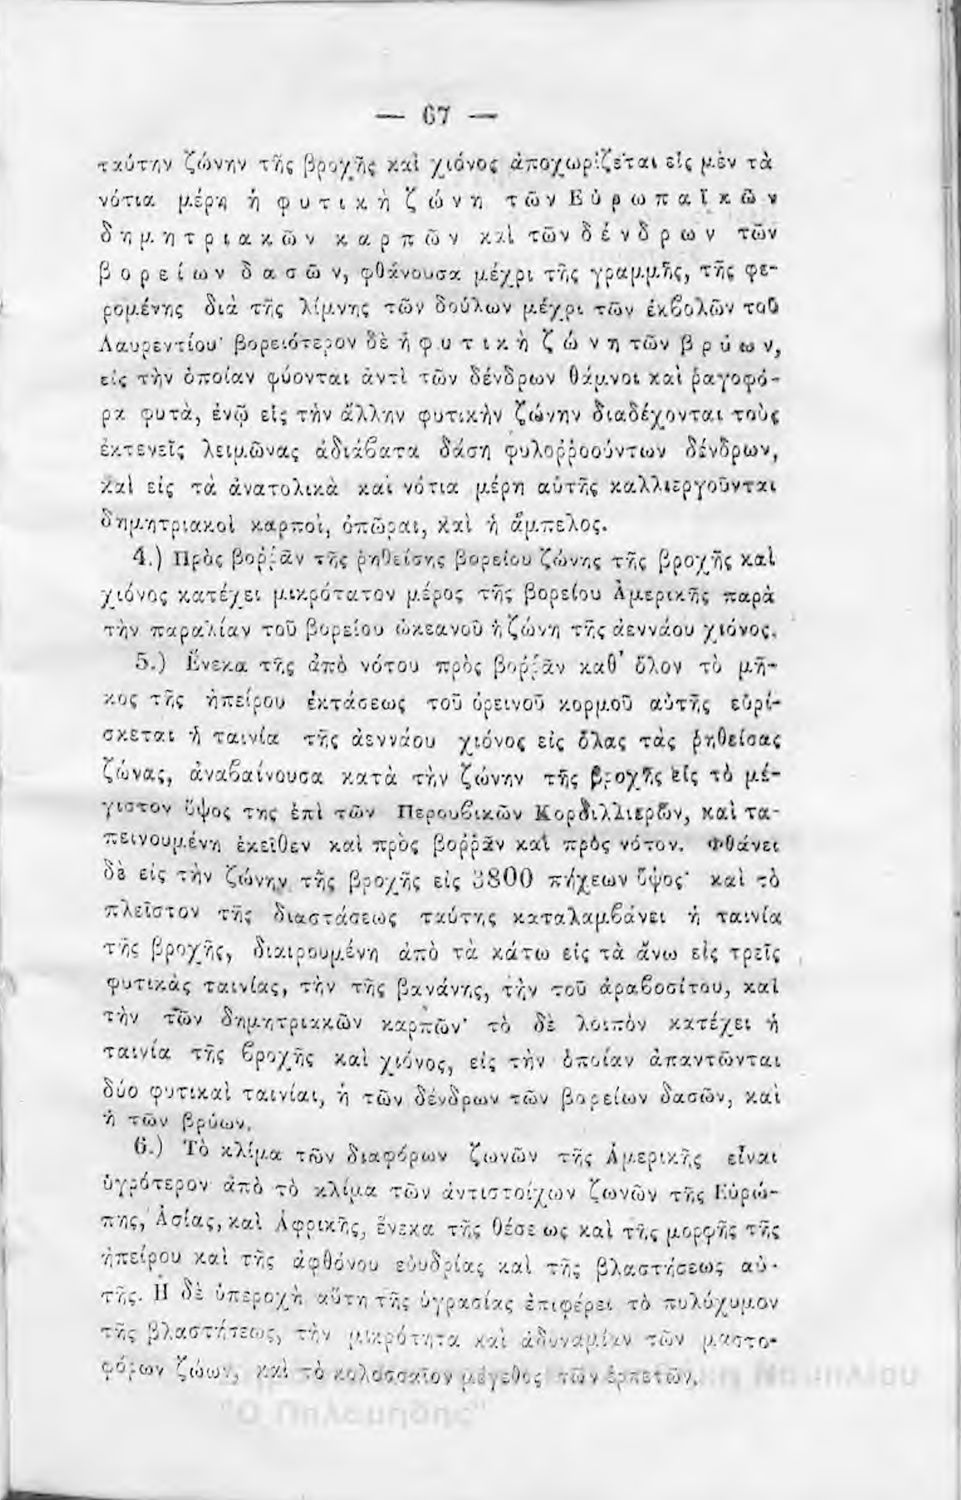 — 67 —
ταύτην ζώνην τῆς βροχῆς καὶ χιόνος ἀποχωρίζεται εἰς μὲν τὰ
νότια μέρη ἡ φυτικὴ ζώνη τῶν Εὐρωπαϊκῶν
δημητριακῶν καρπῶν καὶ τῶν δένδρων τῶν
βορείων δασῶν, φθάνουσα μέχρι τῆς γραμμῆς, τῆς φε-
ρομένης διὰ τῆς λίμνης τῶν δούλων μέχρι τῶν ἐκβολῶν τοῦ
Λαυρεντίου· βορειότερον δὲ ἡ φυτικὴ ζώνη τῶν βρύων,
εἰς τὴν ὁποίαν φύονται ἀντὶ τῶν δένδρων θάμνοι καὶ ῥαγοφό-
ρα φυτὰ, ἐνῷ εἰς τὴν ἄλλην φυτικὴν ζώνην διαδέχονται τοὺς
ἐκτενεῖς λειμῶνας ἀδιάβατα δάση φυλοῤῥοούντων δένδρων,
καὶ εἰς τὰ ἀνατολικὰ καὶ νότια μέρη αὐτῆς καλλιεργοῦνται
δημητριακοὶ καρποὶ, ὀπῶραι, καὶ ἡ ἄμπελος.
4.) Πρὸς βοῤῥᾶν τῆς ῥηθείσης βορείου ζώνης τῆς βροχῆς καὶ
χιόνος κατέχει μικρότατον μέρος τῆς βορείου Ἀμερικῆς παρὰ
τὴν παραλίαν τοῦ βορείου ὠκεανοῦ ἡ ζώνη τῆς ἀεννάου χιόνος.
5.) Ἕνεκα τῆς ἀπὸ νότου πρὸς βοῤῥᾶν καθ᾽ ὅλον τὸ μῆ-
κος τῆς ἠπείρου ἐκτάσεως τοῦ ὀρεινοῦ κορμοῦ αὐτῆς εὑρί-
σκεται ἡ ταινία τῆς ἀεννάου χιόνος εἰς ὅλας τὰς ῥηθείσας
ζώνας, ἀναβαίνουσα κατὰ τὴν ζώνην τῆς βροχῆς εἰς τὸ μέ-
γιστον ὕψος της ἐπὶ τῶν Περουβικῶν Κορδιλλιερῶν, καὶ τα-
πεινουμένη ἐκεῖθεν καὶ πρὸς βοῤῥᾶν καὶ πρὸς νότον. Φθάνει
δὲ εἰς τὴν ζώνην τῆς βροχῆς εἰς 3800 πήχεων ὕψος· καὶ τὸ
πλεῖστον τῆς διαστάσεως ταύτης καταλαμβάνει ἡ ταινία
τῆς βροχῆς, διαιρουμένη ἀπὸ τὰ κάτω εἰς τὰ ἄνω εἰς τρεῖς
φυτικὰς ταινίας, τὴν τῆς βανάνης, τὴν τοῦ ἀραβοσίτου, καὶ
τὴν τῶν δημητριακῶν καρπῶν· τὸ δὲ λοιπὸν κατέχει ἡ
ταινία τῆς βροχῆς καὶ χιόνος, εἰς τὴν ὁποίαν ἀπαντῶνται
δύο φυτικαὶ ταινίαι, ἡ τῶν δένδρων τῶν βορείων δασῶν, καὶ
ἡ τῶν βρύων.
6.) Τὸ κλίμα τῶν διαφόρων ζωνῶν τῆς Ἀμερικῆς εἶναι
ὑγρότερον ἀπὸ τὸ κλίμα τῶν ἀντιστοίχων ζωνῶν τῆς Εὐρώ-
πης, Ἀσίας, καὶ Ἀφρικῆς, ἕνεκα τῆς θέσεως καὶ τῆς μορφῆς τῆς
ἠπείρου καὶ τῆς ἀφθόνου εὐυδρίας καὶ τῆς βλαστήσεως αὐ-
τῆς. Ἡ δὲ ὑπεροχὴ αὕτη τῆς ὑγρασίας ἐπιφέρει τὸ πολύχυμον
τῆς βλαστήσεως, τὴν μικρότητα καὶ ἀδυναμίαν τῶν μαστο-
φόρων ζώων, καὶ τὸ κολοσσαῖον μέγεθος τῶν ἑρπετῶν.
Ναυπλίου
"Ο Παλαμήδης"